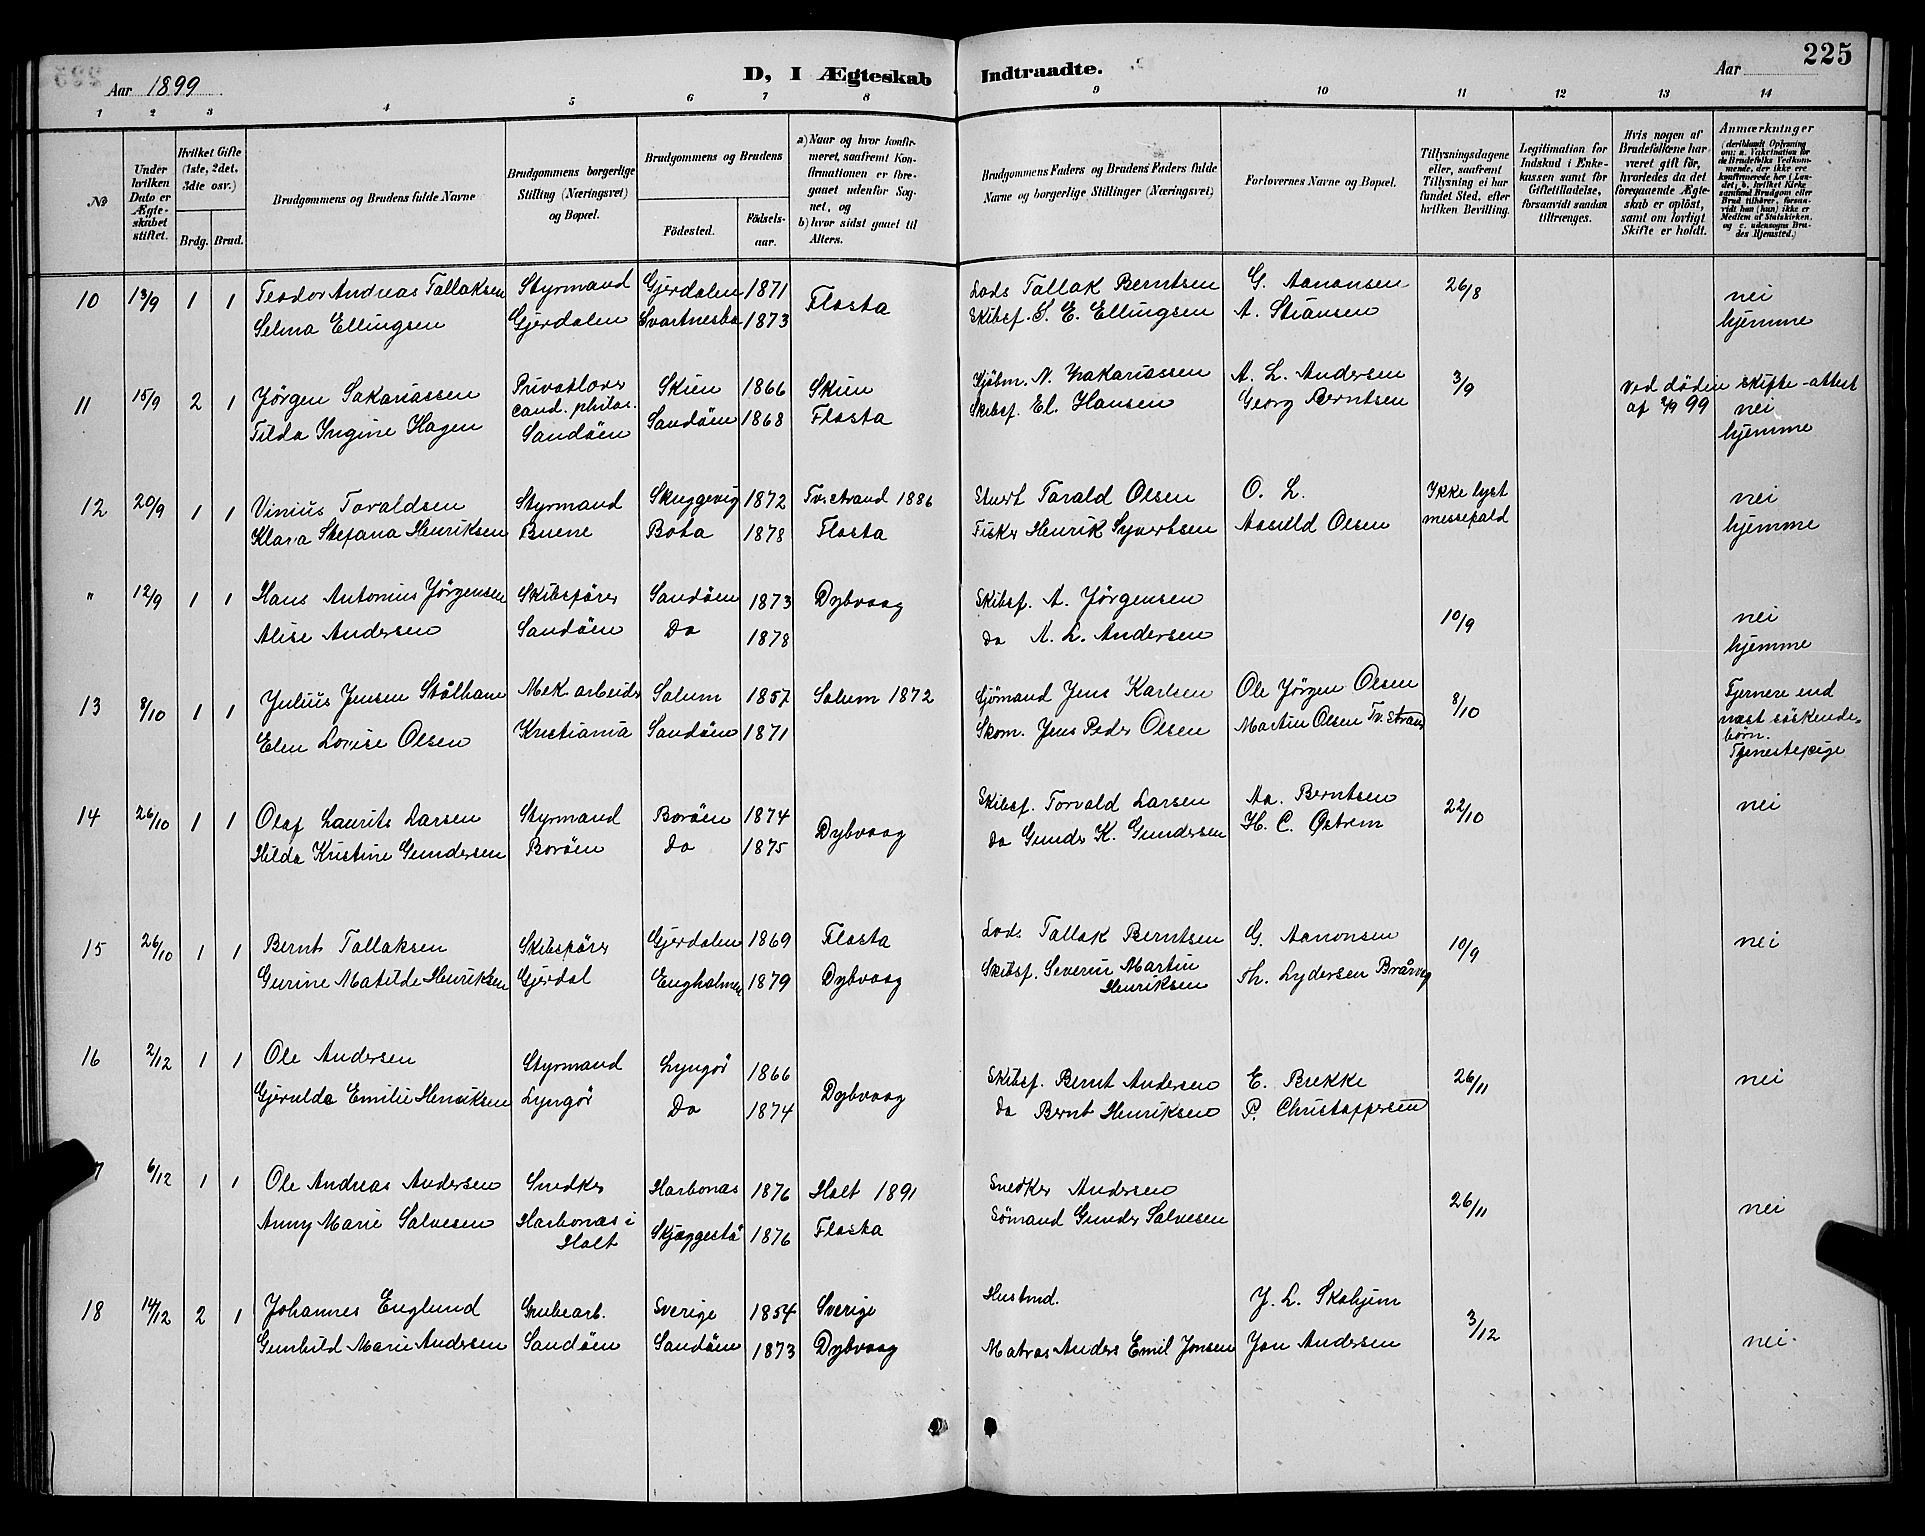 225
Aar 1899
D, I Ægteskab Indtraadte.
Aar
1 2 3 4 5 6 7 8 9 10 11 12 13 14
No
Under hvilken Dato er Ægteskabet stiftet.
Hvilket Gifte (1ste, 2det, 3dte osv.)
Brdg. Brud.
Brudgommens og Brudens fulde Navne
Brudgommens borgerlige Stilling (Næringsvei) og Bopæl.
Brudgommens og Brudens
Födested.
Födsels-aar.
a) Naar og hvor konfirmeret, saafremt Konfirmationen er foregaaet udenfor Sognet, og
b) hvor sidst gaaet til Alters.
Brudgommens Faders og Brudens Faders fulde Navne og borgerlige Stillinger (Næringsvei)
Forlovernes Navne og Bopæl.
Tillysningsdagene eller, saafremt Tillysning ei har fundet Sted, efter hvilken Bevilling.
Legitimation for Indskud i Enkekassen samt for Giftetilladelse, forsaavidt saadan tiltrænges.
Hvis nogen af Brudefolkene har været gift för, hvorledes da det foregaaende Ægteskab er oplöst, samt om lovligt Skifte er holdt.
Anmærkninger (deriblandt Oplysning om: a. Vakcination for de Brudefolks Vedkommende, der ikke ere konfirmerede her i Landet; b. hvilket Kirkesamfund Brudgom eller Brud tilhører, forsaavidt han (hun) ikke er Medlem af Statskirken, og c. udensogns Brudes Hjemsted.)
10 13/9 1 1 Teodor Andreas Tallaksen Styrmand Gjerdalen 1871 Flosta Lods Tallak Berntsen G. Aanonsen 26/8 nei
Selma Ellingsen Gjerdalen Svartnesbo 1873 Skibsf. S. E. Ellingsen A. Stiansen hjemme
11 15/9 2 1 Jörgen Sakariassen Privatlærer cand. philos. Skien 1866 Skien Kjöbm. N. Zakariassen A. L. Andersen 3/9 Ved döden skifte-attest af 2/9 99 nei
Tilda Ingine Hagen Sandöen Sandöen 1868 Flosta Skibsf. El. Hansen Georg Berntsen hjemme
12 20/9 1 1 Vinius Tovaldsen Styrmand Skuggevig 1872 Tvestrand 1886 Stuert Tarald Olsen O. L. Ikke lyst nei
Klara Stefana Henriksen Buene Bota 1878 Flosta Fisker Henrik Syvertsen Assuld Olsen messefald hjemme
" 12/9 1 1 Hans Antonius Jörgensen Skibsförer Sandöen 1873 Dybvaag Skibsf. A. Jörgensen 10/9 nei
Alise Andersen Sandöen Do 1878 Do A. L. Andersen hjemme
13 8/10 1 1 Julius Jensen Stålhane Mek. arbeider Solum 1857 Solum 1872 Sjömand Jens Karlsen Ole Jörgen Olsen 8/10 Fjernere end
Elen Lovise Olsen Kristiania Sandöen 1871 Skom. Jens Peder Olsen Martin Olsen Tv.strand næst söskendebörn.
Tjenestepige
14 26/10 1 1 Olaf Laurits Larsen Styrmand Boröen 1874 Dybvaag Skibsf. Torvald Larsen Aa. Berntsen 22/10 nei
Hilda Kristine Gundersen Boröen Do 1875 Do Gunder K. Gundersen H. C. Östrem
15 26/10 1 1 Bernt Tallaksen Skibsförer Gjerdalen 1869 Flosta Lods Tallak Berntsen G. Aanonsen 10/9 nei
Gurine Matilde Henriksen Gjerdal Engholmen 1879 Dybvaag Skibsf. Severin Martin Henriksen Th. Lydersen Bråvig
16 2/12 1 1 Ole Andersen Styrmand Lyngör 1866 Dybvaag Skibsf. Bernt Andersen E. Brekke 26/11 nei
Gjerulda Emilie Henriksen Lyngör Do 1874 Do Bernt Henriksen P. Christoffersen
7 6/12 1 1 Ole Andreas Andersen Snedker Harbonas 1876 Holt 1891 Snedker Andersen 26/11 nei
Anny Marie Salvesen Harbonas i Holt Skjæggestö 1876 Flosta Sömand Gunder Salvesen
18 14/12 2 1 Johannes Englund Grubearb. Sverige 1854 Sverige Husmd. J. L. Skohjem 3/12
Gunhild Marie Andersen Sandöen Sandöen 1873 Dybvaag Matros Anders Emil Jonsen Jan Andersen nei